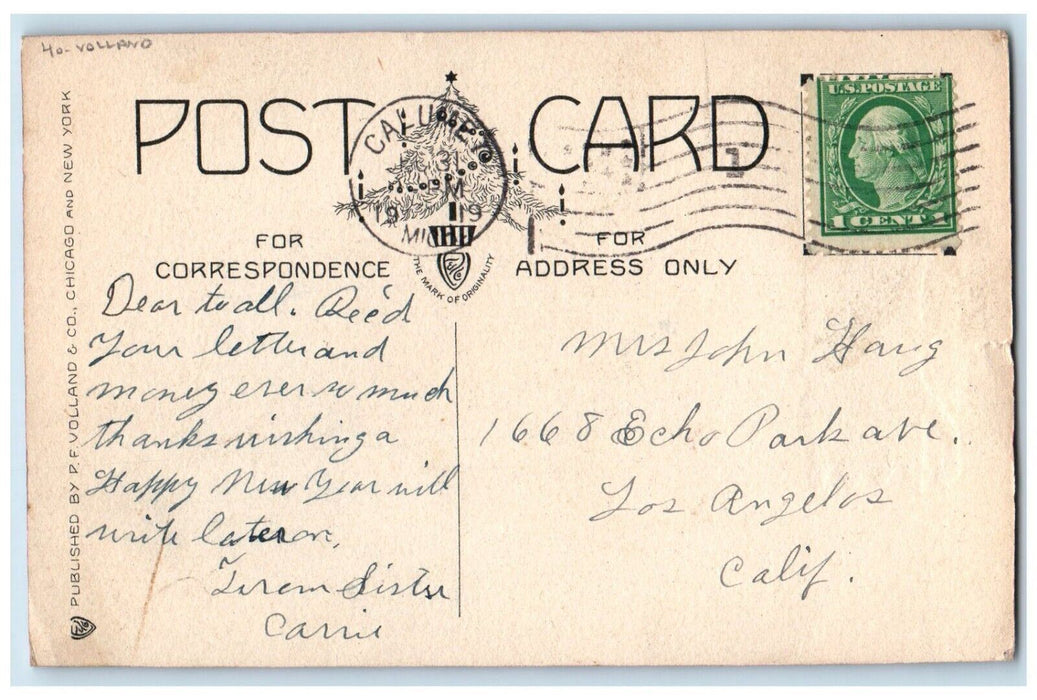 40- VOLLAND
POST CARD
CALUMET
31
PM
19 19
MICH
U.S. POSTAGE
1 CENT 1
FOR
CORRESPONDENCE
THE MARK OF ORIGINALITY
FOR
ADDRESS ONLY
PUBLISHED BY P. F. VOLLAND & CO., CHICAGO AND NEW YORK
Dear to all. Rec'd
Your letter and
money ever so much
thanks wishing a
Happy New Year will
write later on,
From Sister
Carrie
Mrs John Haug
1668 Echo Park ave.
Los Angelos
Calif.